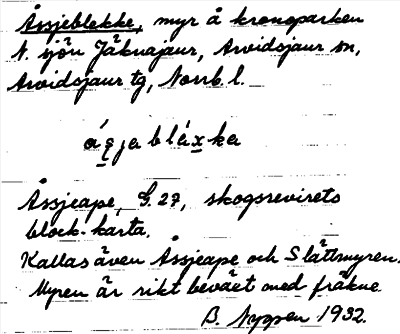 Åssjeblekke, myr å kronoparken
N. sjön Jäknajaur, Arvidsjaur sn,
Arvidsjaur tg, Norrb. l.
Åssjeape, G. 27, skogsrevirets
block-karta.
Kallas även Åssjeape och Slåttmyren.
Myren är rikt beväxt med fräkne
B. Nygren 1932.